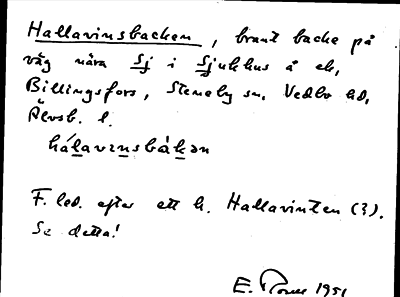 Hallavinsbacken, brant backe på
väg nära Sj i Sjukhus å ek,
Billingsfors, Steneby sn, Vedbo hd,
Älvsb. l.
hálavinsbàkən
F. led. efter ett h. Hallavinten (?).
Se detta!
E. 1951